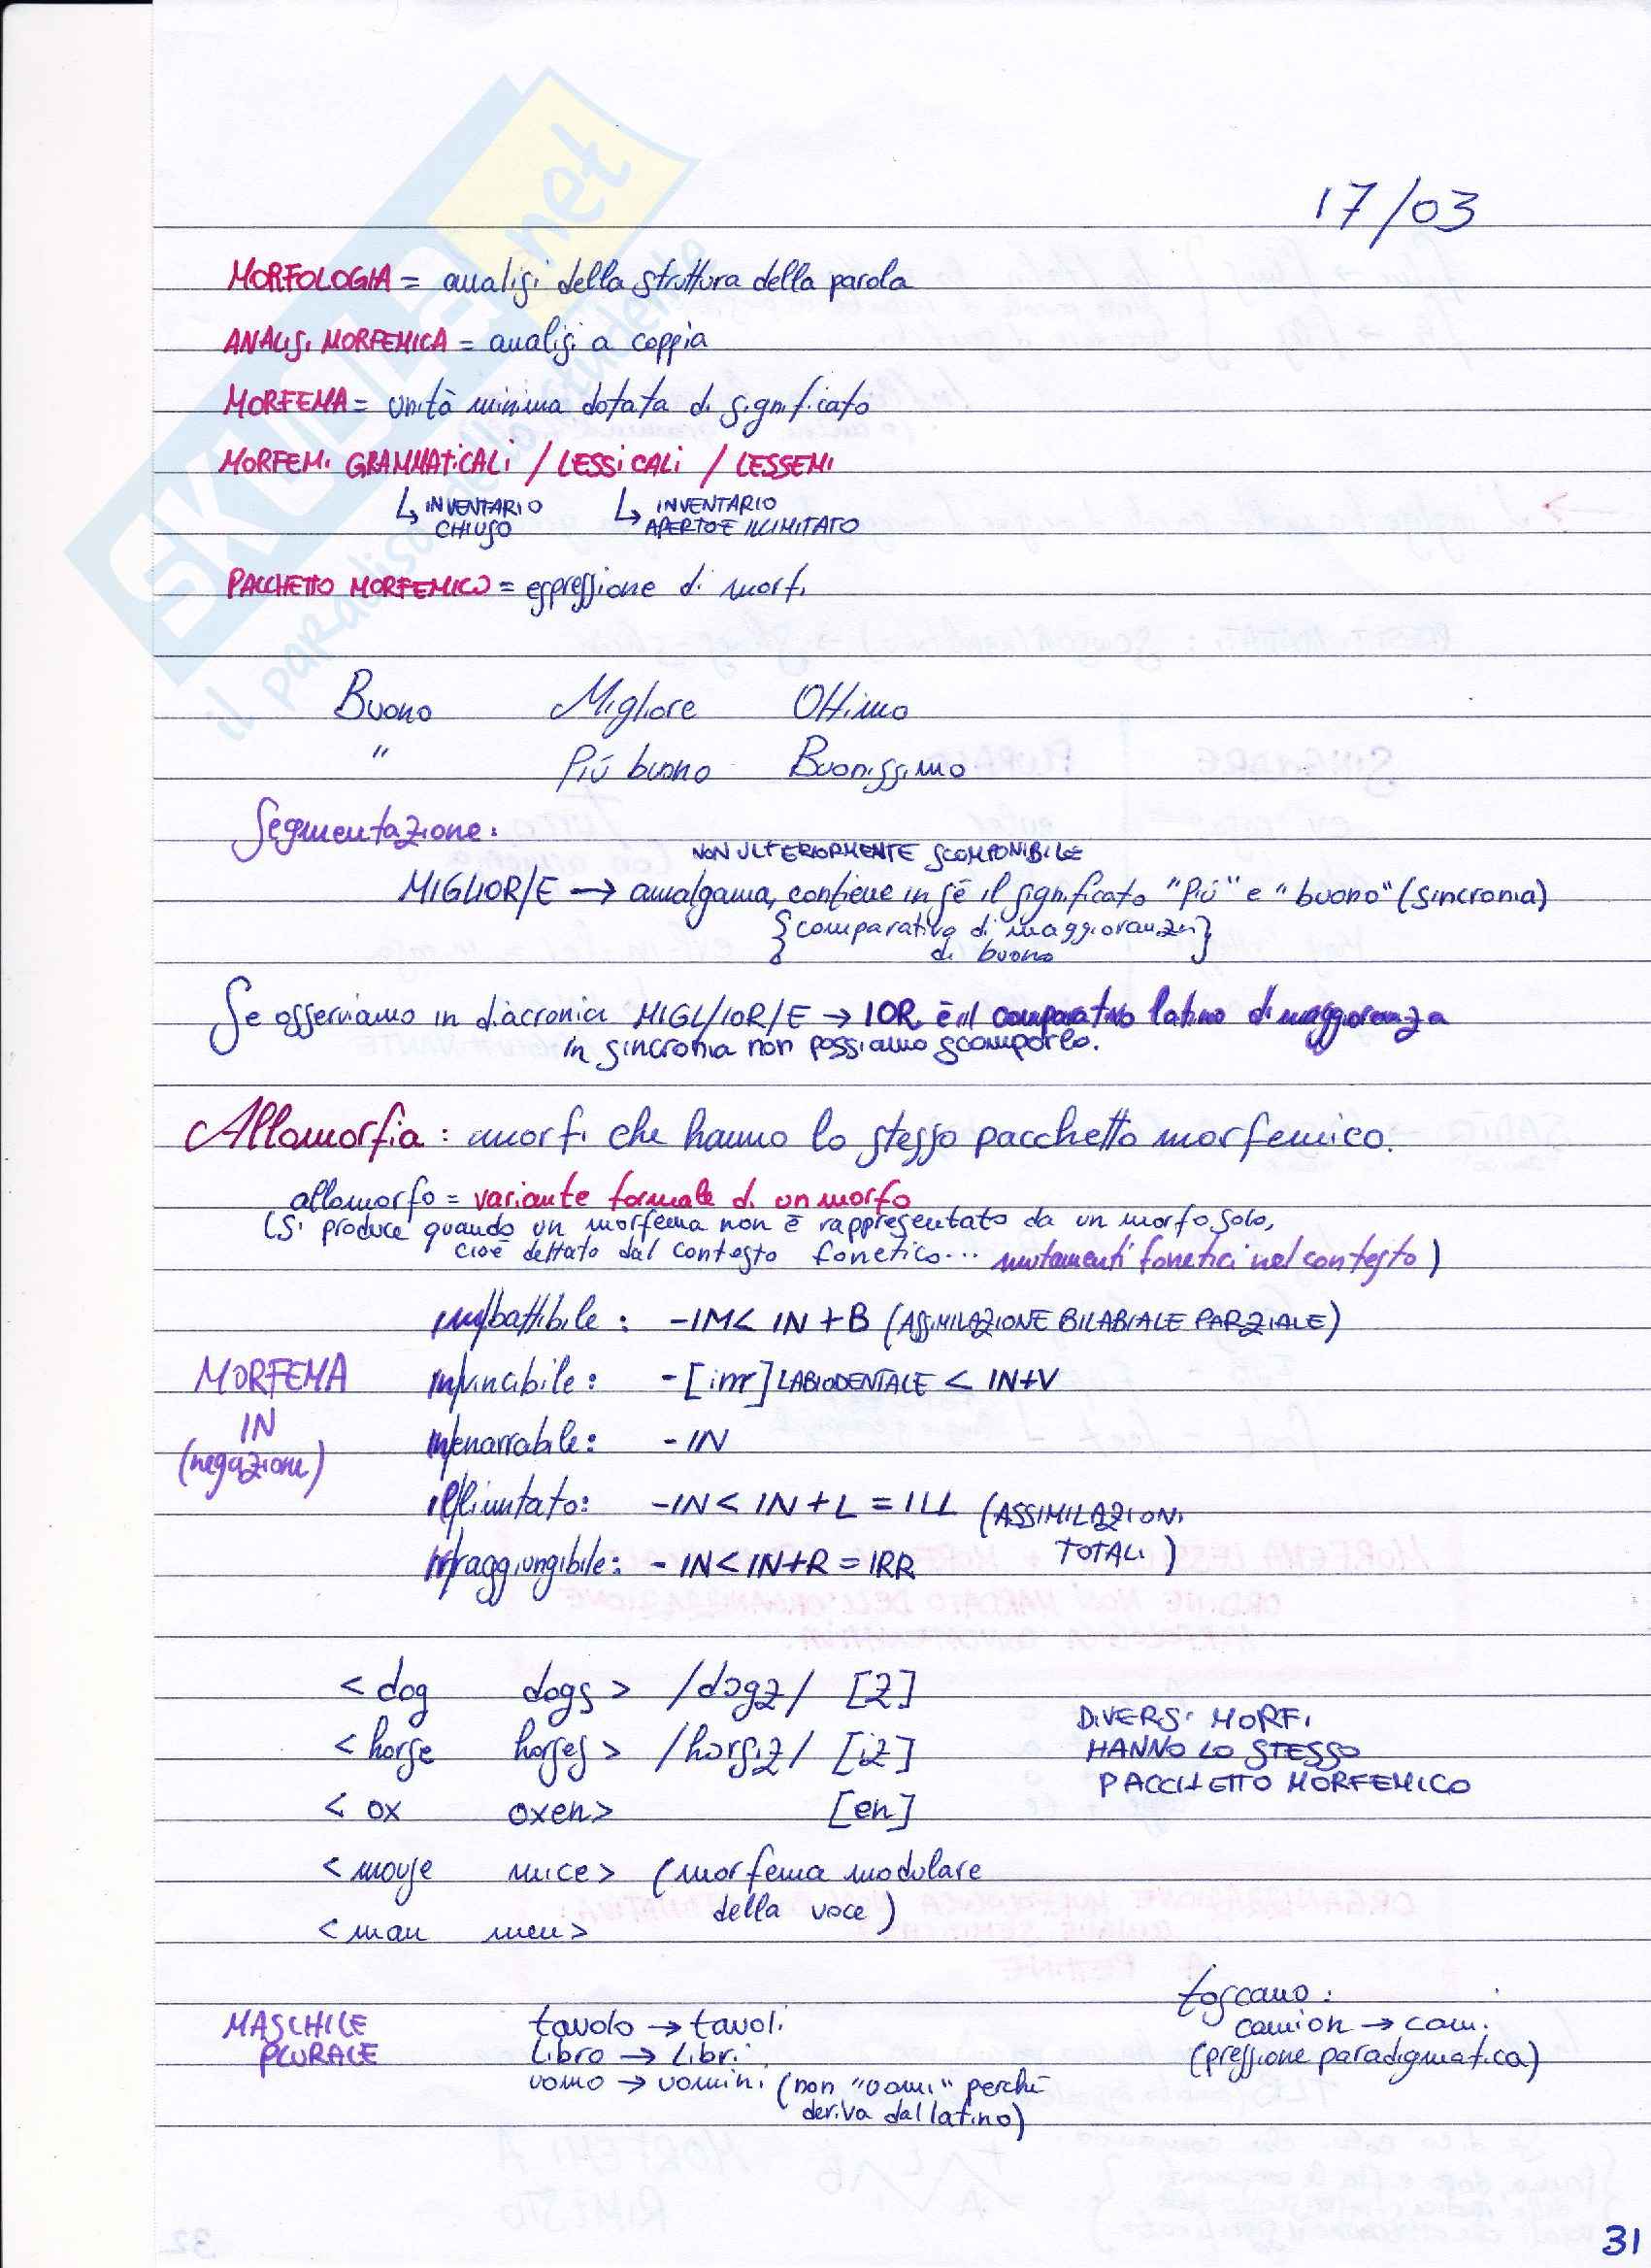 17/03
MORFOLOGIA = analisi della struttura della parola
ANALISI MORFEMICA = analisi a coppia
MORFEMA = unità minima dotata di significato
MORFEMI GRAMMATICALI / LESSICALI / LESSEMI
↳ INVENTARIO CHIUSO ↳ INVENTARIO APERTO E ILLIMITATO
PACCHETTO MORFEMICO = espressione di morfi
Buono Migliore Ottimo
" Più buono Buonissimo
Segmentazione:
NON ULTERIORMENTE SCOMPONIBILE
MIGLIOR/E → amalgama, contiene in sé il significato "più" e "buono" (sincronia)
{comparativo di maggioranza
di buono}
Se osserviamo in diacronia MIGL/IOR/E → IOR è il comparativo latino di maggioranza
in sincronia non possiamo scomporlo.
Allomorfia: morfi che hanno lo stesso pacchetto morfemico.
allomorfo = variante formale di un morfo
(si produce quando un morfema non è rappresentato da un morfo solo,
cioè dettato dal contesto fonetico... mutamenti fonetici nel contesto)
MORFEMA
IN
(negazione)
im/battibile: -IM < IN + B (ASSIMILAZIONE BILABIALE PARZIALE)
in/vincibile: - LABIODENTALE < IN+V
in/enarrabile: - IN
il/limitato: -IN < IN + L = ILL (ASSIMILAZIONI
TOTALI)
ir/raggiungibile: - IN < IN+R = IRR
< dog dogs > /dɔgz/ [z]
< horse horses > /hɔrsiz/ [iz]
< ox oxen> [en]
< mouse mice > (morfema modulare
della voce)
< man men>
DIVERSI MORFI
HANNO LO STESSO
PACCHETTO MORFEMICO
MASCHILE
PLURALE
tavolo → tavoli
libro → libri
uomo → uomini (non "uomi" perché
deriva dal latino)
toscano:
camion → cami
(pressione paradigmatica)
31
SKUOLA.net
il paradiso dello studente